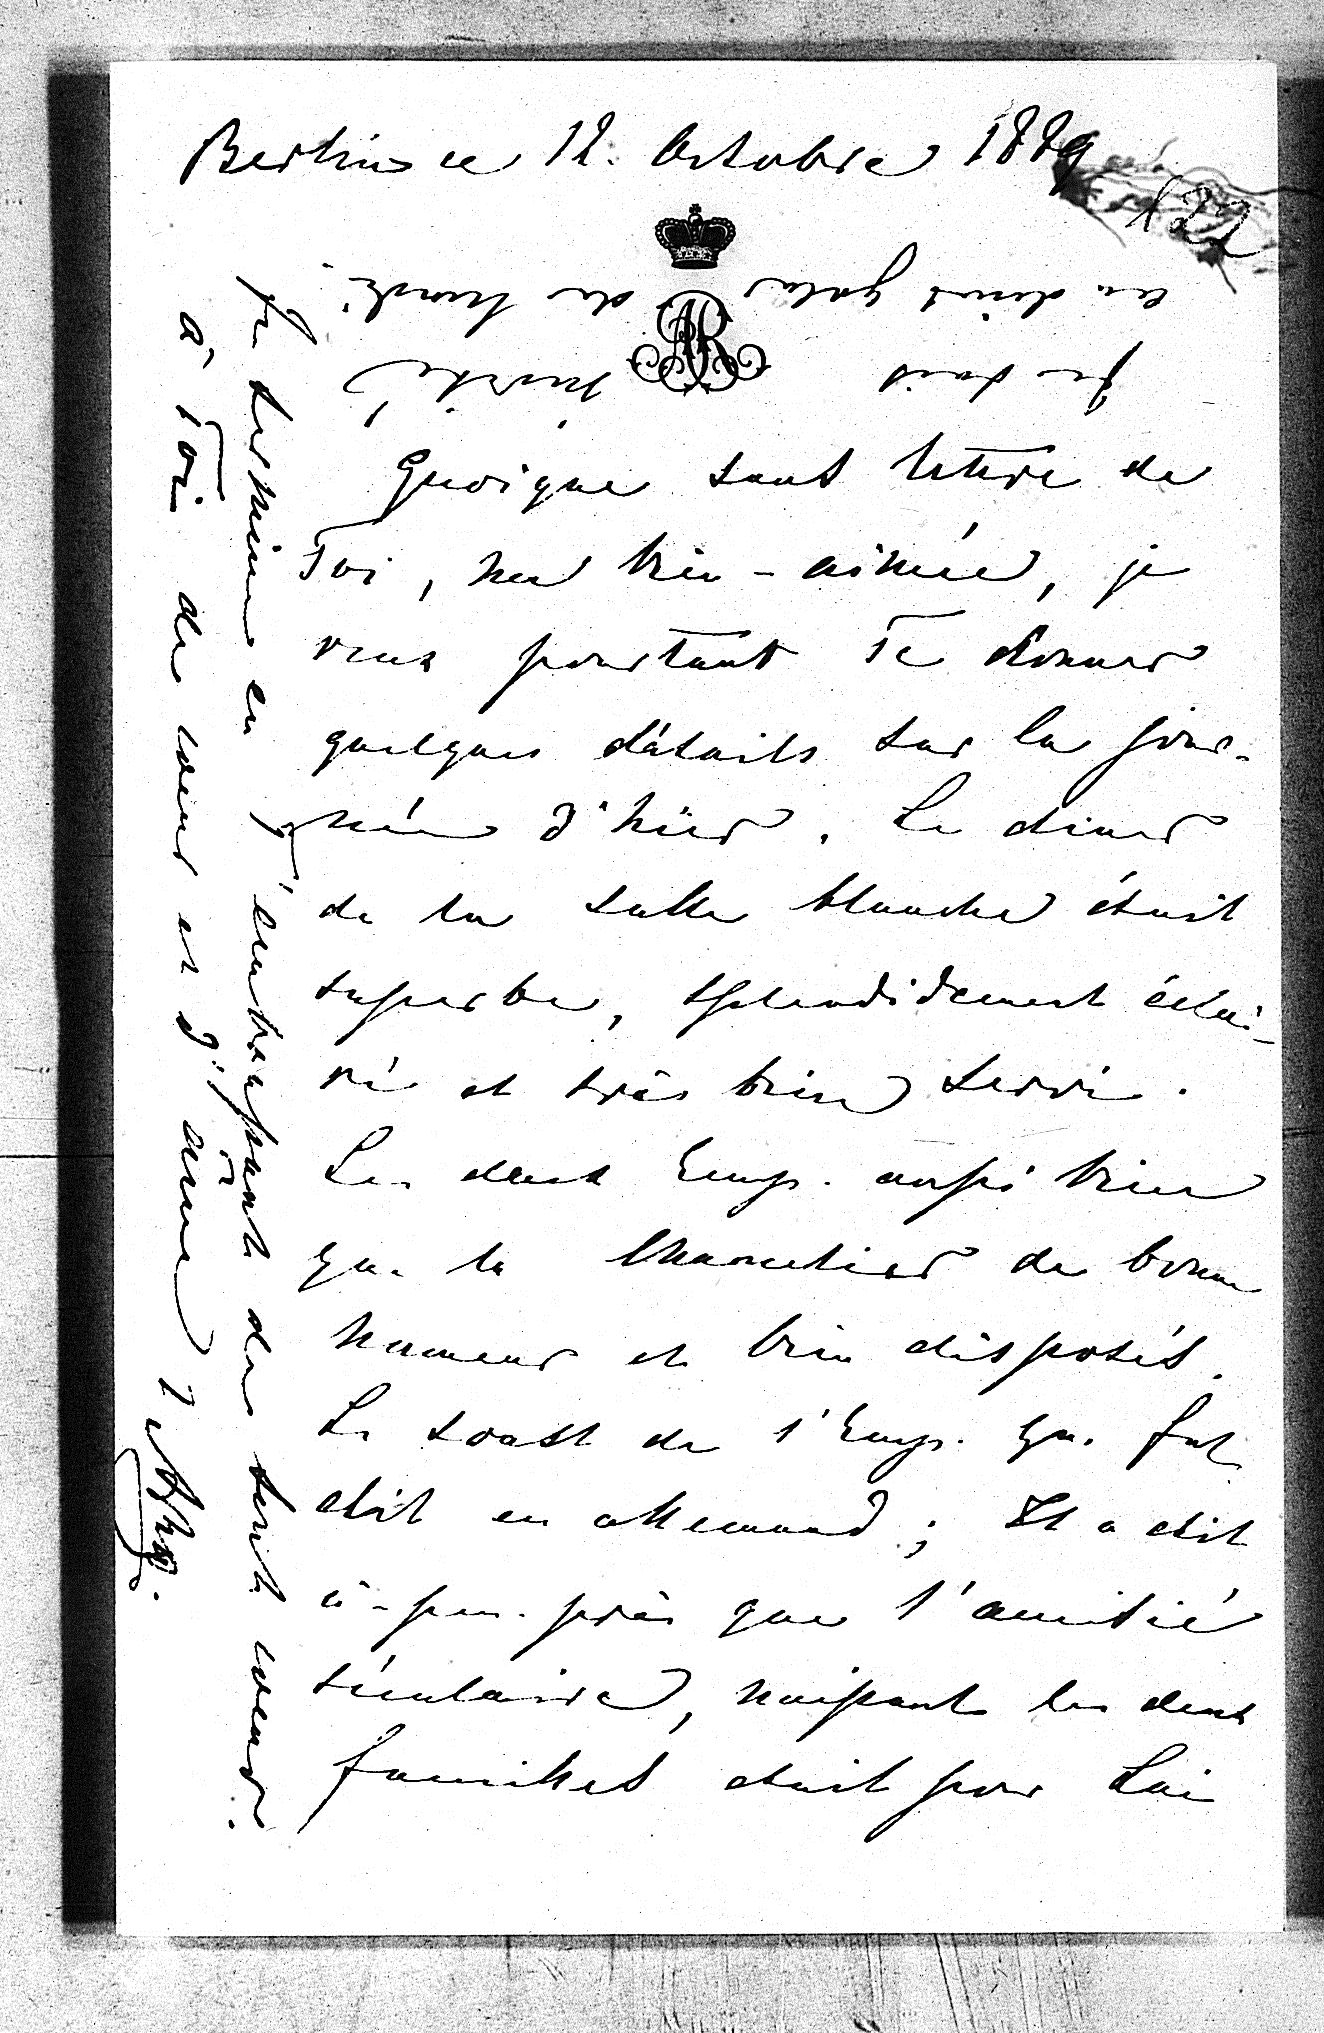 Berlin ce 12. Octobre 1889
Quoique sans lettre de
Toi, ma bien-aimée, je
veux pourtant Te donner
quelques détails sur la jour-
née d'hier. Le diner
de la salle blanche était
superbe, splendidement éclai-
ré et très bien servi.
Les deux Emp. aussi bien
que le Chancelier de bonne
humeur et bien disposés.
Le toast de l'Emp. Gu. fut
dit en allemand; Il a dit
à-peu-près que l'amitié
séculaire, unissant les deux
familles était pour Lui
Je termine en T'embrassant de tout coeur.
à Toi de coeur et d'âme